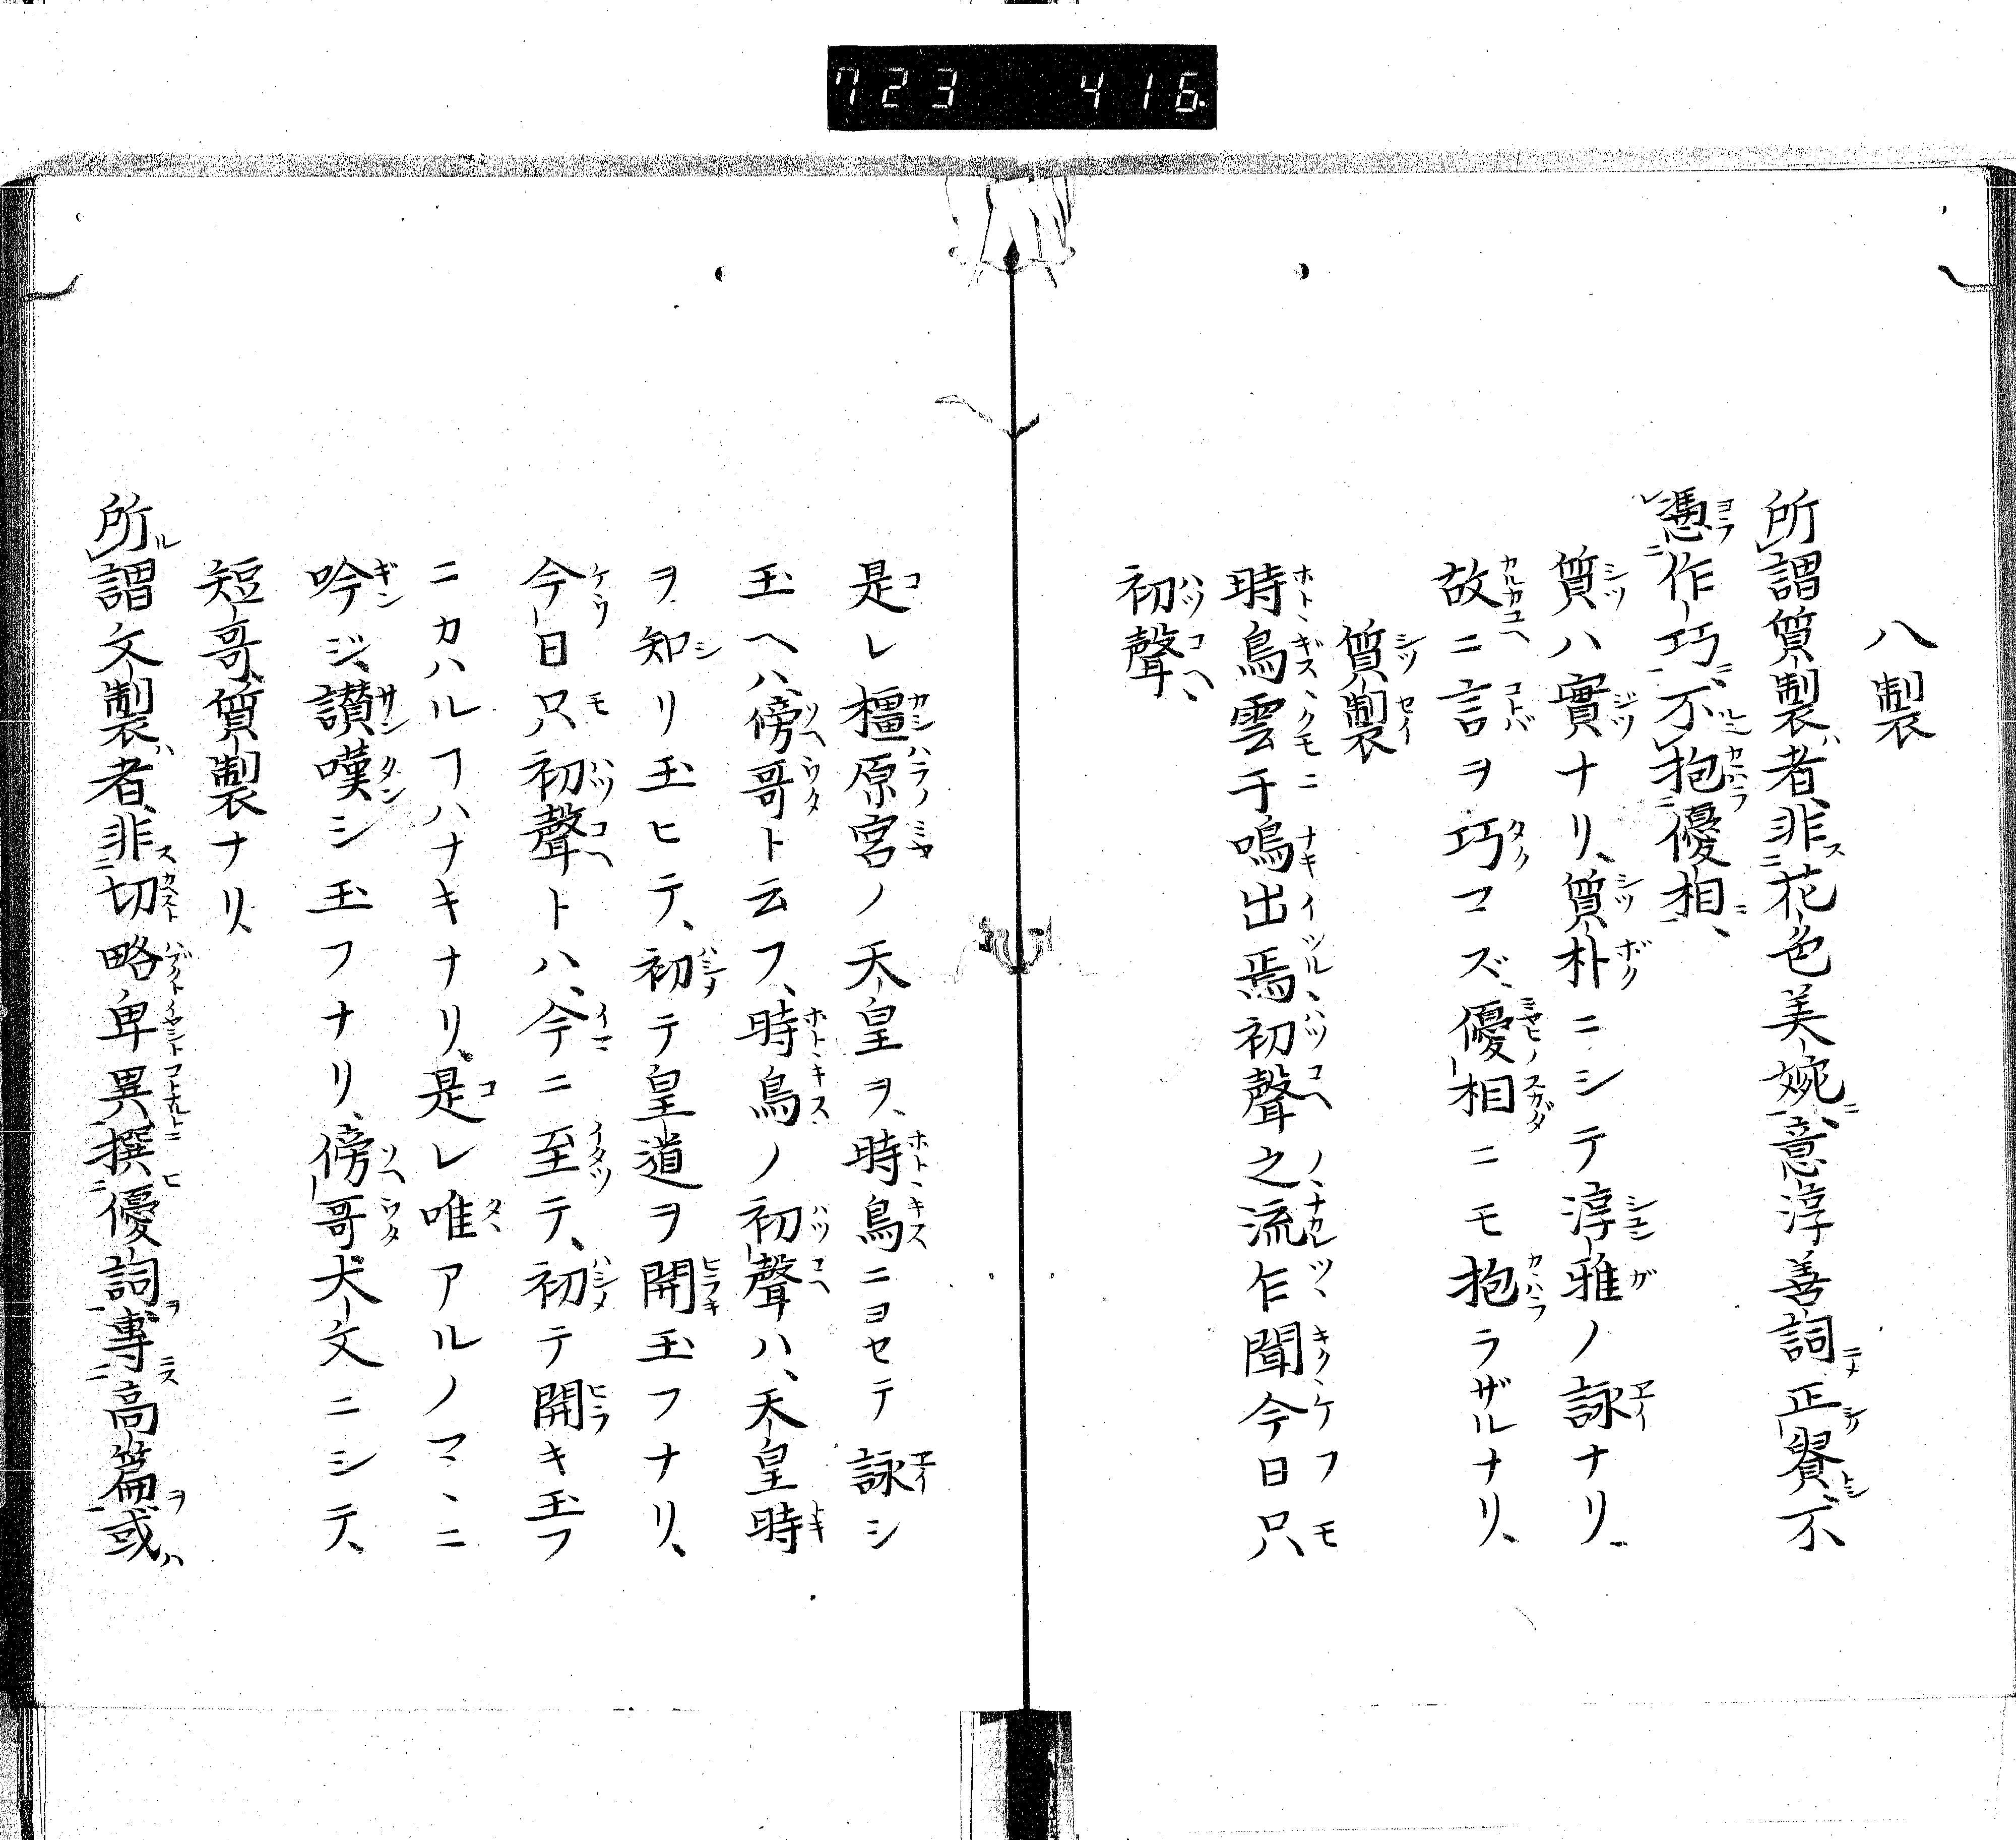 723 416
八製
所謂質製者、非花色美婉、意淳善詞正賢、不
憑作巧、不抱優相、
質ハ實ナリ、質朴ニシテ淳雅ノ詠ナリ
故ニ言ヲ巧マズ、優相ニモ抱ラザルナリ、
質製
時鳥雲于鳴出焉初聲之流乍聞今日只
初聲、
是レ橿原宮ノ天皇ヲ、時鳥ニヨセテ詠シ
玉ヘハ、傍哥ト云フ、時鳥ノ初聲ハ、天皇時
ヲ知リ玉ヒテ、初テ皇道ヲ開玉フナリ、
今日只初聲トハ、今ニ至テ、初テ開キ玉フ
ニカハルヿハナキナリ、是レ唯アルノマヽニ
吟ジ、讃嘆シ玉フナリ、傍哥犬文ニシテ、
短哥、質製ナリ、
所謂文製者、非切略卑異、撰優詞、專高篇、或